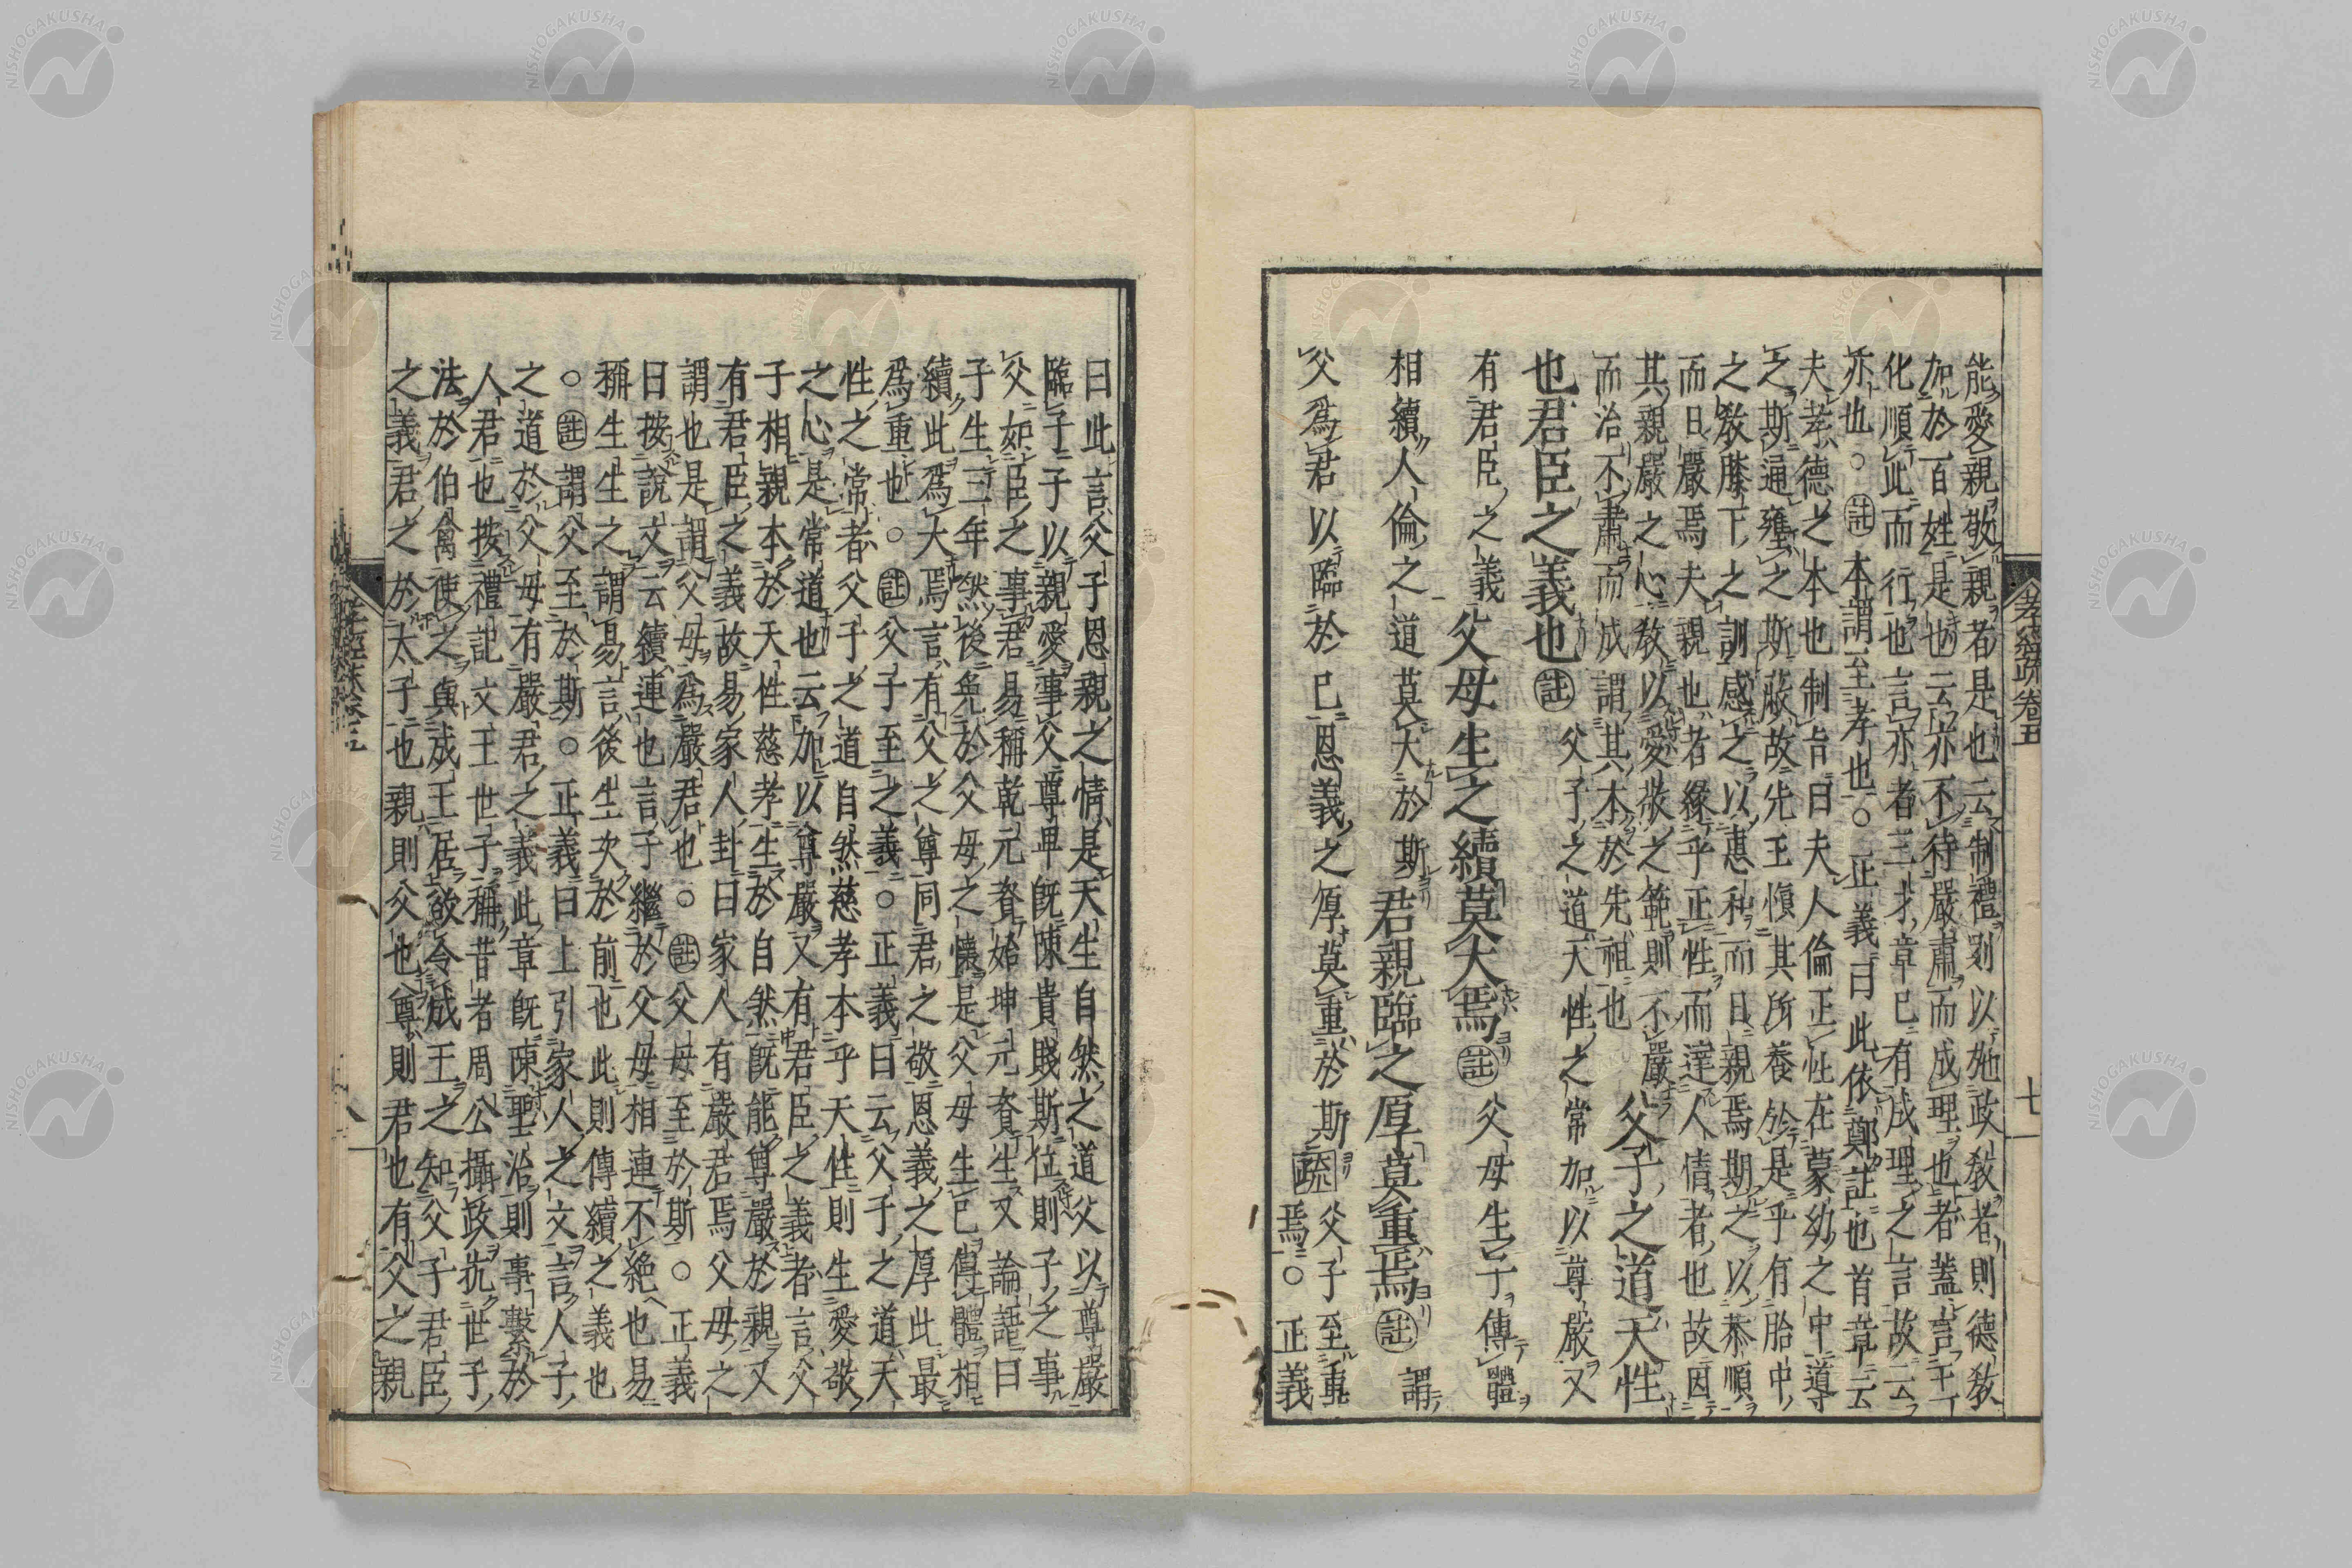 能愛親敬親者是也云制禮則以施政教者則德教
加於百姓是也云亦不待嚴肅而成理也者蓋言王丁
化順此而行也言亦者三才章已有成理之言故云
亦也○註本謂至孝也○正義曰此依鄭註也首章云
夫孝德之本也制旨曰夫人倫正性在蒙幼之中導
之斯通壅之斯蔽故先王慎其所養於是乎有胎中
之教膝下之訓感之以惠和而日親焉期之以恭順
而日嚴焉夫親也者緣乎正性而達人情者也故因
其親嚴之心教以愛敬之範則不嚴
而治不肅而成謂其本於先祖也
父子之道天性
也君臣之義也註父子之道天性之常加以尊嚴又
有君臣之義
父母生之續莫大焉註父母生子傳體
相續人倫之道莫大於斯
君親臨之厚莫重焉註謂
父為君以臨於己恩義之厚莫重於斯疏父子至重
焉○正義
孝經疏卷五
七
曰此言父子恩親之情是天生自然之道父以尊嚴
臨子子以親愛事父尊卑既陳貴賤斯位則子之事
父如臣之事君易稱乾元資始坤元資生又論語曰
子生三年然後免於父母之懷是父母生己傳體相
續此為大焉言有父之尊同君之敬恩義之厚此最
為重也○註父子至之義○正義曰云父子之道天
性之常者父子之道自然慈孝本乎天性則生愛敬
之心是常道也云加以尊嚴又有君臣之義者言父
子相親本於天性慈孝生於自然既能尊嚴於親又
有君臣之義故易家人卦曰家人有嚴君焉父母之
謂也是謂父母為嚴君也○註父母至於斯○正義
曰按說文云續連也言子繼於父母相連不絕也易
稱生生之謂易言後生次於前也此則傳續之義也
○註謂父至於斯○正義曰上引家人之文言人子
之道於父母有嚴君之義此章既陳聖治則事繫於
人君也按禮記文王世子稱昔者周公攝政抗世子
法於伯禽使之與成王居欲令成王之知父子君臣
之義君之於太子也親則父也尊則君也有父之親